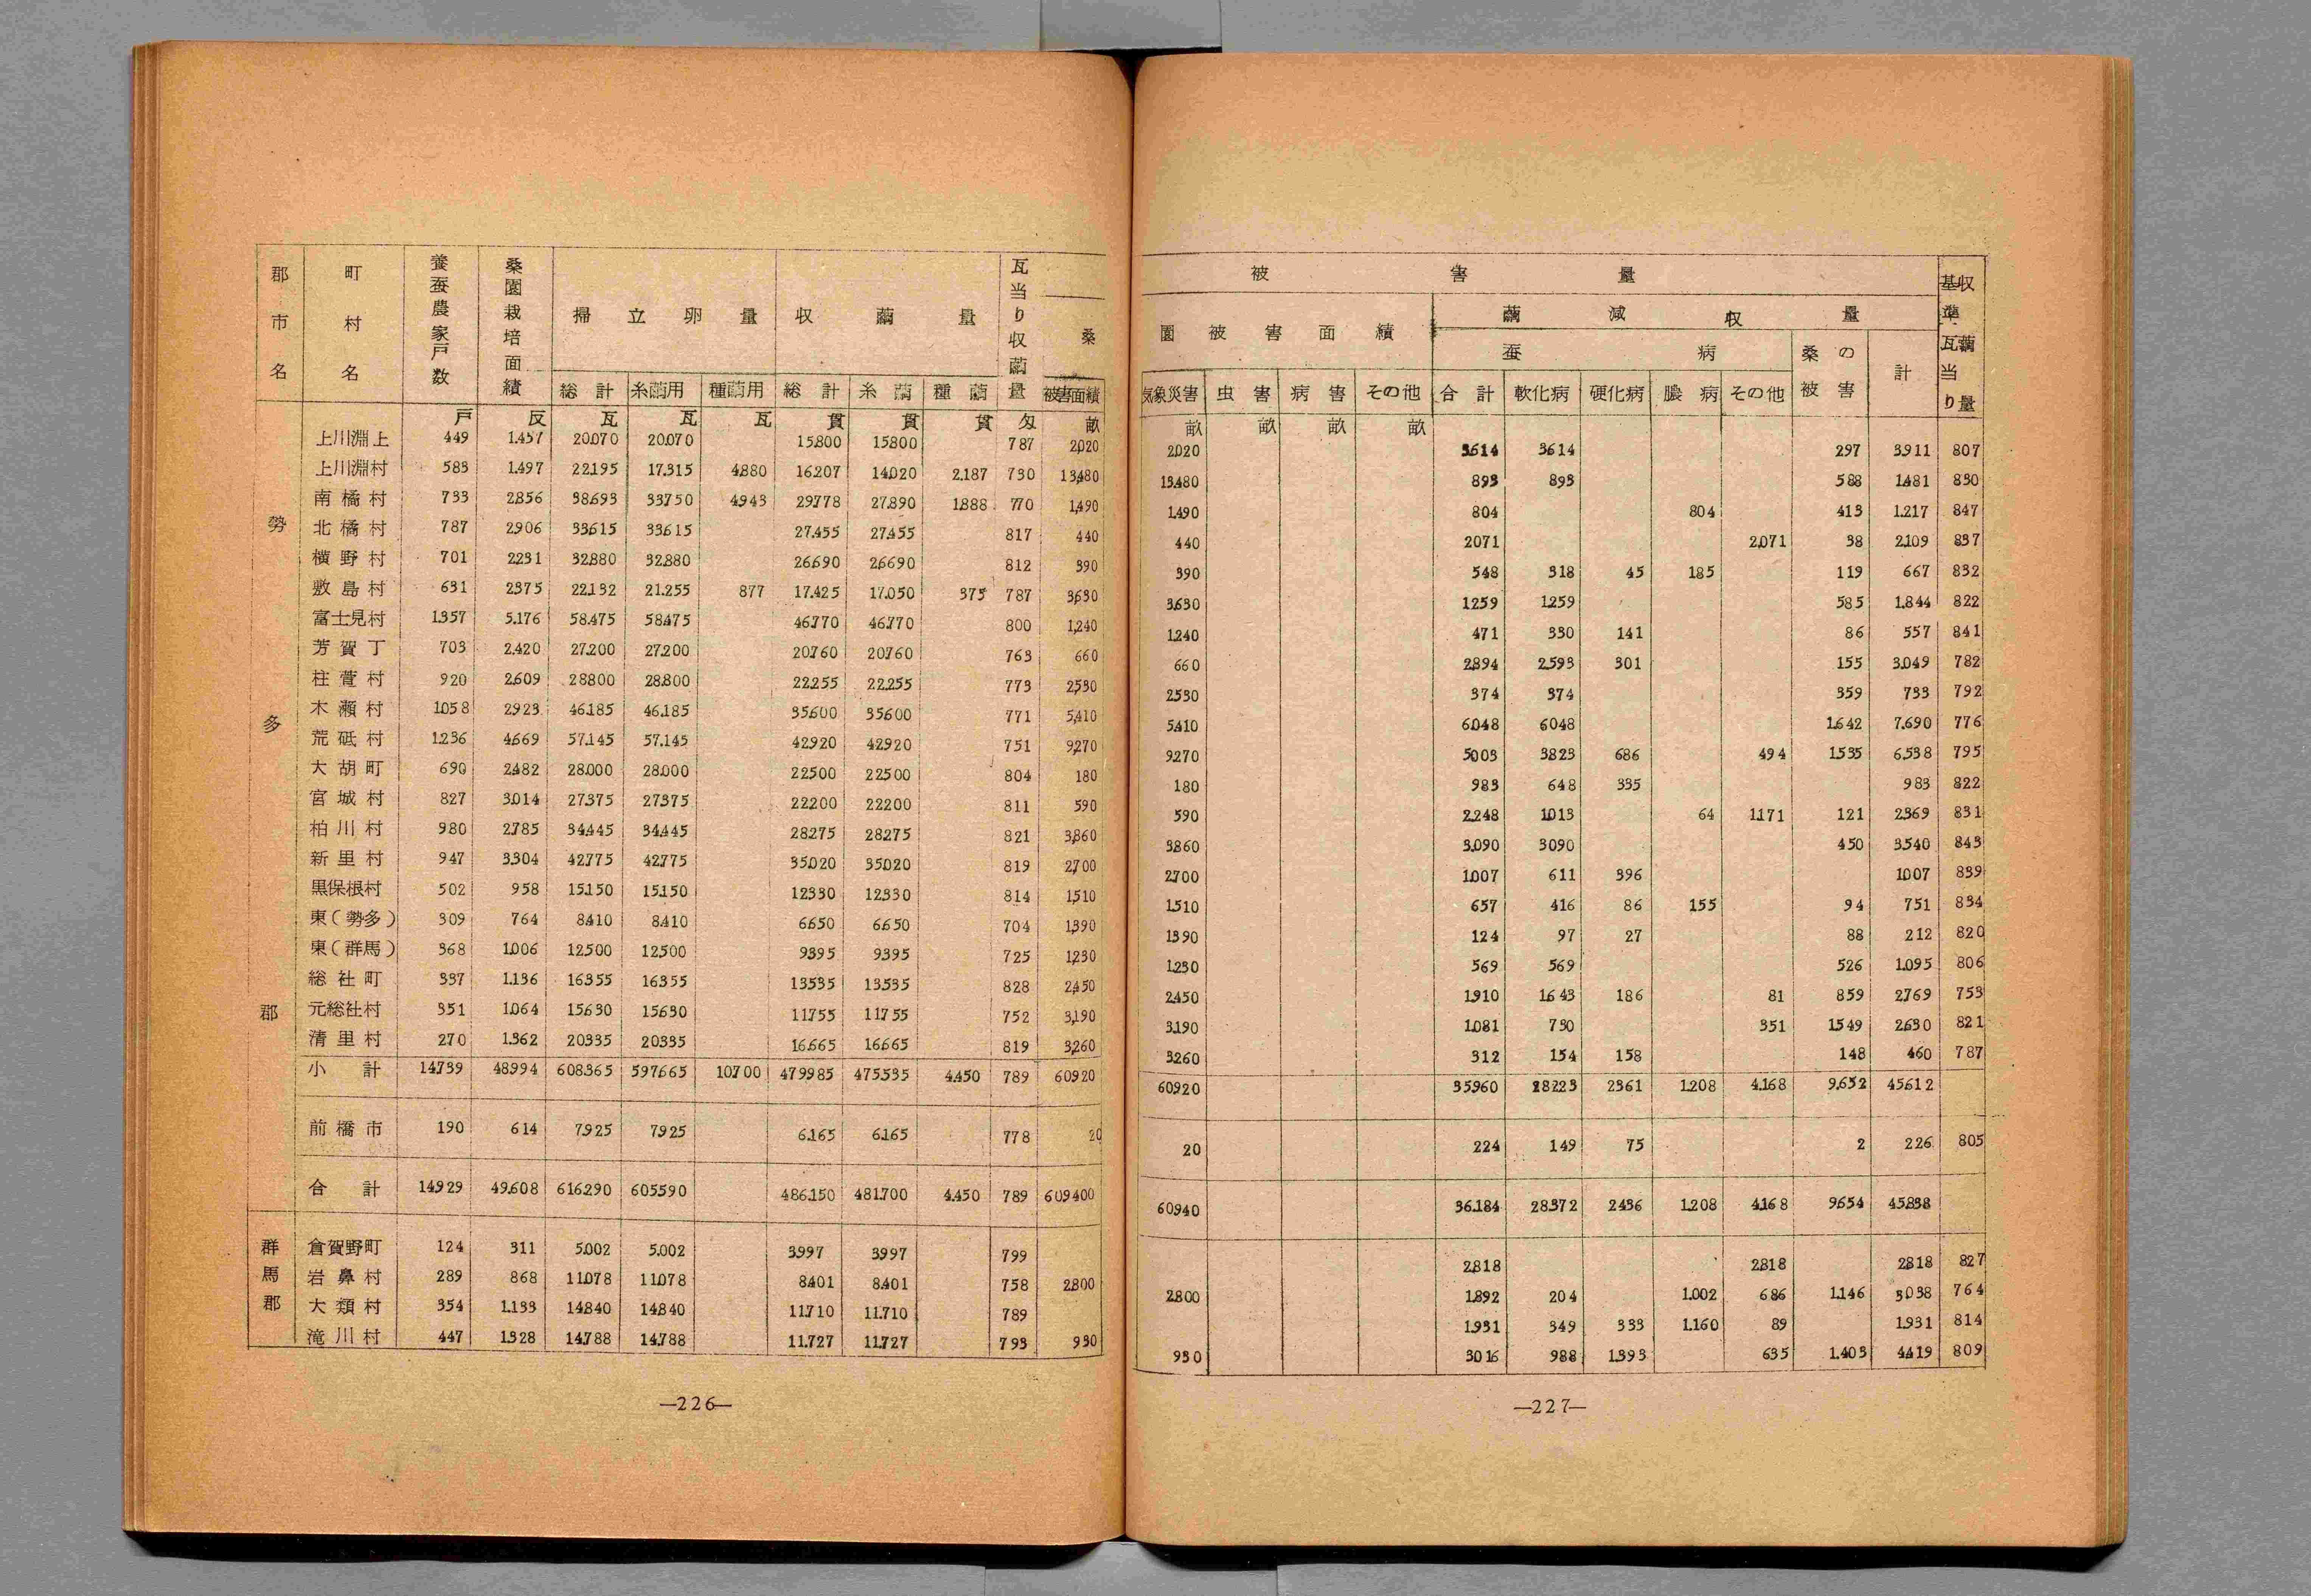 郡市名 町村名 養蚕農家戸数 桑園栽培面績 掃立卵量 収繭量 瓦当り収繭量 桑
総計 糸繭用 種繭用 総計 糸繭 種繭 被害面績
戸 反 瓦 瓦 瓦 貫 貫 貫 匁 畝
勢多郡
上川淵上 449 1.457 20.070 20.070 15.800 15.800 787 2.020
上川淵村 583 1.497 22.195 17.315 4.880 16.207 14.020 2.187 730 13.480
南橘村 733 2.856 38.693 33.750 4.943 29.778 27.890 1.888 770 1.490
北橘村 787 2.906 33.615 33.615 27.455 27.455 817 440
横野村 701 2.231 32.880 32.880 26.690 26.690 812 390
敷島村 631 2.375 22.132 21.255 877 17.425 17.050 375 787 3.630
富士見村 1.357 5.176 58.475 58.475 46.770 46.770 800 1.240
芳賀丁 703 2.420 27.200 27.200 20.760 20.760 763 660
柱萱村 920 2.609 28.800 28.800 22.255 22.255 773 2.530
木瀬村 1.058 2.923 46.185 46.185 35.600 35.600 771 5.410
荒砥村 1.236 4.669 57.145 57.145 42.920 42.920 751 9.270
大胡町 690 2.482 28.000 28.000 22.500 22.500 804 180
宮城村 827 3.014 27.375 27.375 22.200 22.200 811 590
柏川村 980 2.785 34.445 34.445 28.275 28.275 821 3.860
新里村 947 3.304 42.775 42.775 35.020 35.020 819 2.700
黒保根村 502 958 15.150 15.150 12.330 12.330 814 1.510
東(勢多) 309 764 8.410 8.410 6.650 6.650 704 1.390
東(群馬) 368 1.006 12.500 12.500 9.395 9.395 725 1.230
総社町 337 1.136 16.355 16.355 13.535 13.535 828 2.450
元総社村 351 1.064 15.630 15.630 11.755 11.755 752 3.190
清里村 270 1.362 20.335 20.335 16.665 16.665 819 3.260
小計 14.739 48.994 608.365 597.665 10.700 479.985 475.535 4.450 789 60.920
前橋市 190 614 7.925 7.925 6.165 6.165 778 20
合計 14.929 49.608 616.290 605.590 486.150 481.700 4.450 789 609400
群馬郡
倉賀野町 124 311 5.002 5.002 3.997 3.997 799
岩鼻村 289 868 11.078 11.078 8.401 8.401 758 2.800
大類村 354 1.133 14.840 14.840 11.710 11.710 789
滝川村 447 1.328 14.788 14.788 11.727 11.727 793 930
—226—
被害量 基準瓦当り収繭量
園被害面績 繭減収量
蚕病 桑の被害 計
気象災害 虫害 病害 その他 合計 軟化病 硬化病 膿病 その他
畝 畝 畝 畝
2.020 3.614 3.614 297 3.911 807
13.480 893 893 588 1.481 830
1.490 804 804 413 1.217 847
440 2.071 2.071 38 2.109 837
390 548 318 45 185 119 667 832
3.630 1.259 1.259 585 1.844 822
1.240 471 330 141 86 557 841
660 2.894 2.593 301 155 3.049 782
2.530 374 374 359 733 792
5.410 6.048 6.048 1.642 7.690 776
9.270 5.003 3.823 686 494 1.535 6.538 795
180 983 648 335 983 822
590 2.248 1.013 64 1.171 121 2.369 831
3.860 3.090 3.090 450 3.540 843
2.700 1.007 611 396 1.007 839
1.510 657 416 86 155 94 751 834
1.390 124 97 27 88 212 820
1.230 569 569 526 1.095 806
2.450 1.910 1.643 186 81 859 2.769 753
3.190 1.081 730 351 1.549 2.630 821
3.260 312 154 158 148 460 787
60.920 35.960 28.223 2.361 1.208 4.168 9.652 45.612
20 224 149 75 2 226 805
60.940 36.184 28.372 2.436 1.208 4.168 9.654 45.838
2.818 2.818 2.818 827
2.800 1.892 204 1.002 686 1.146 3.038 764
1.931 349 333 1.160 89 1.931 814
930 3.016 988 1.393 635 1.403 4.419 809
—227—